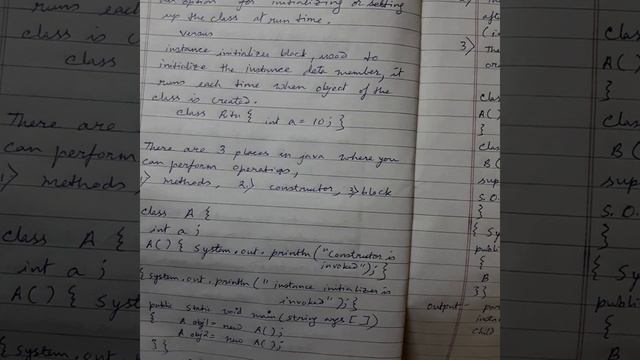 an option for initializing or setting
up the class at run time.
versus
instance initializer block, used to
initialize the instance data member, it
runs each time when object of the
class is created.
class A { int a = 10; }
There are 3 places in java where you
can perform operations,
1) methods, 2) constructor, 3) block
class A {
int a;
A() { System.out.println("Constructor is
invoked"); }
{ system.out.println(" instance initializer is
invoked "); }
public static void main(string args [ ])
{ A obj1 = new A();
A obj2 = new A();
} }
3) The
class
A()
}
class
B(
sup
S.O.
}
{ Sy
publi
{
B
} }
output -
instan
child